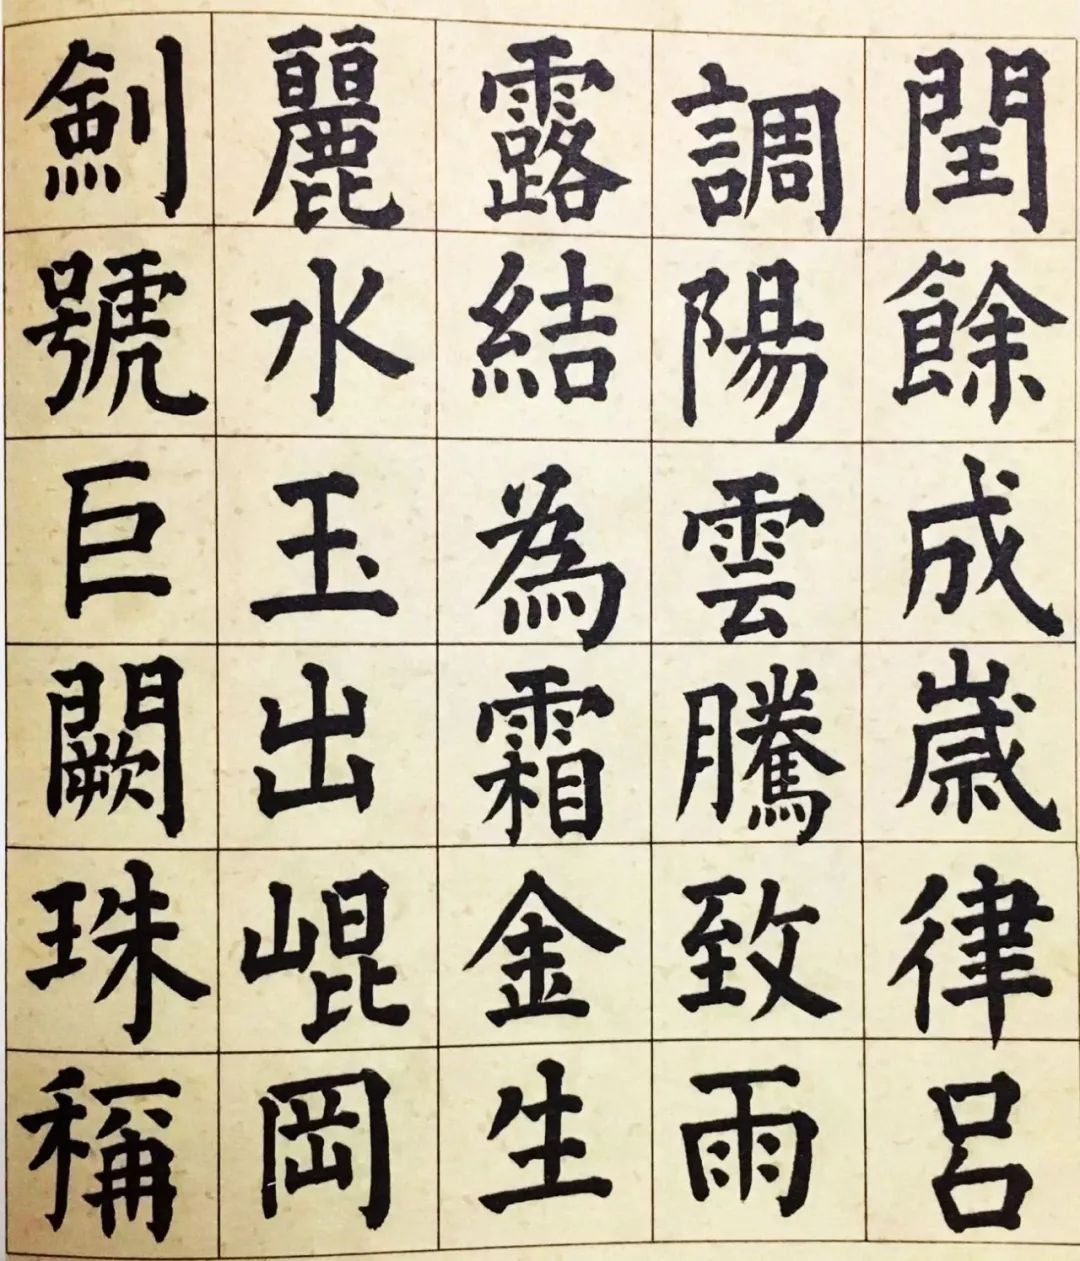 閏餘成歲律呂
調陽雲騰致雨
露結為霜金生
麗水玉出崐岡
劍號巨闕珠稱